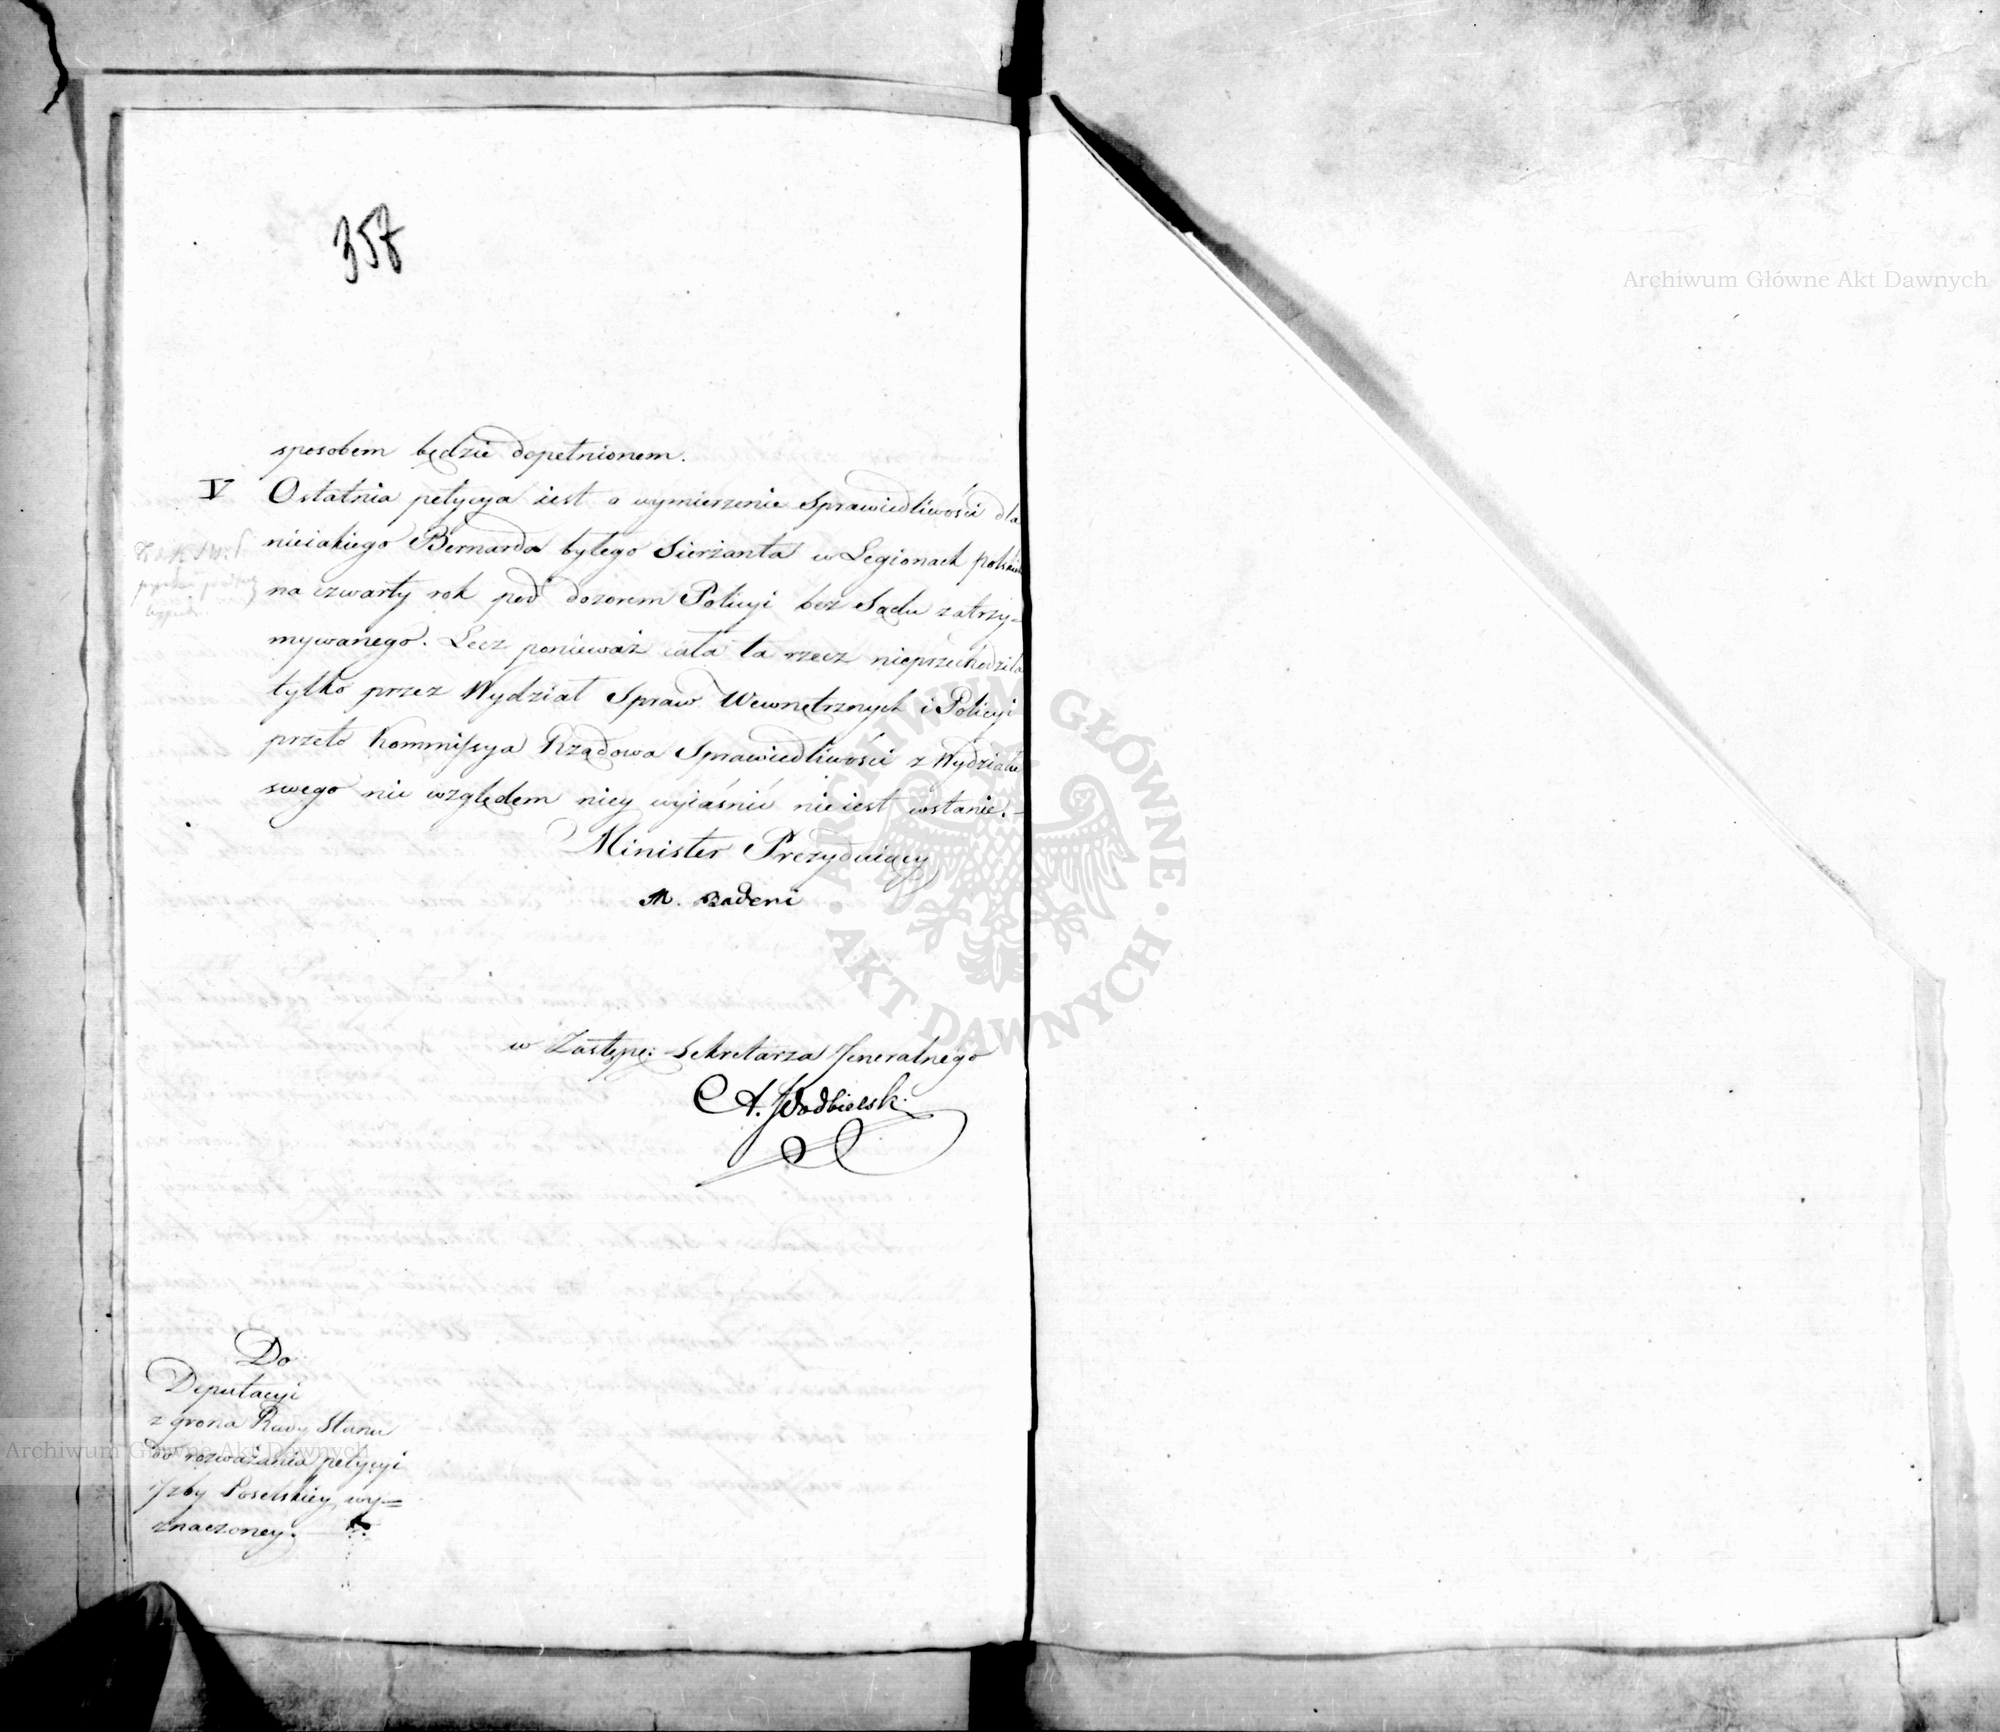 357
sposobem będzie dopełnionem.
V Ostatnia petycya iest o wymierzenie Sprawiedliwości dla
nieiakiego Bernarda byłego Sierżanta w Legionach polskich
na czwarty rok pod dozorem Policyi bez Sądu zatrzy=
mywanego. Lecz ponieważ cała ta rzecz nieprzechodziła
tylko przez Wydział Spraw Wewnętrznych i Policyi
przeto Kommissya Rządowa Sprawiedliwości z Wydziału
swego nic względem niey wyiaśnić nieiest wstanie.
Minister Prezyduiący
M. Badeni
w Zastępe: Sekretarza Jeneralnego
A. Podbielsk.
Do
Deputacyi
z grona Rady Stanu
do rozważania petycyi
Izby Poselskiey wy=
znaczoney.
Archiwum Główne Akt Dawnych
Archiwum Główne Akt Dawnych
ARCHIWUM GŁÓWNE
AKT DAWNYCH